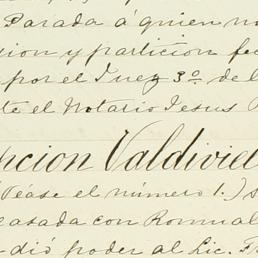 Parada á quien no
sion y particion fe
por el Juez 3º de l
te el Notario Jesus
cion Valdivie
(Véase el número 1.) s
casada con Romual
dió poder al Lic. Fr